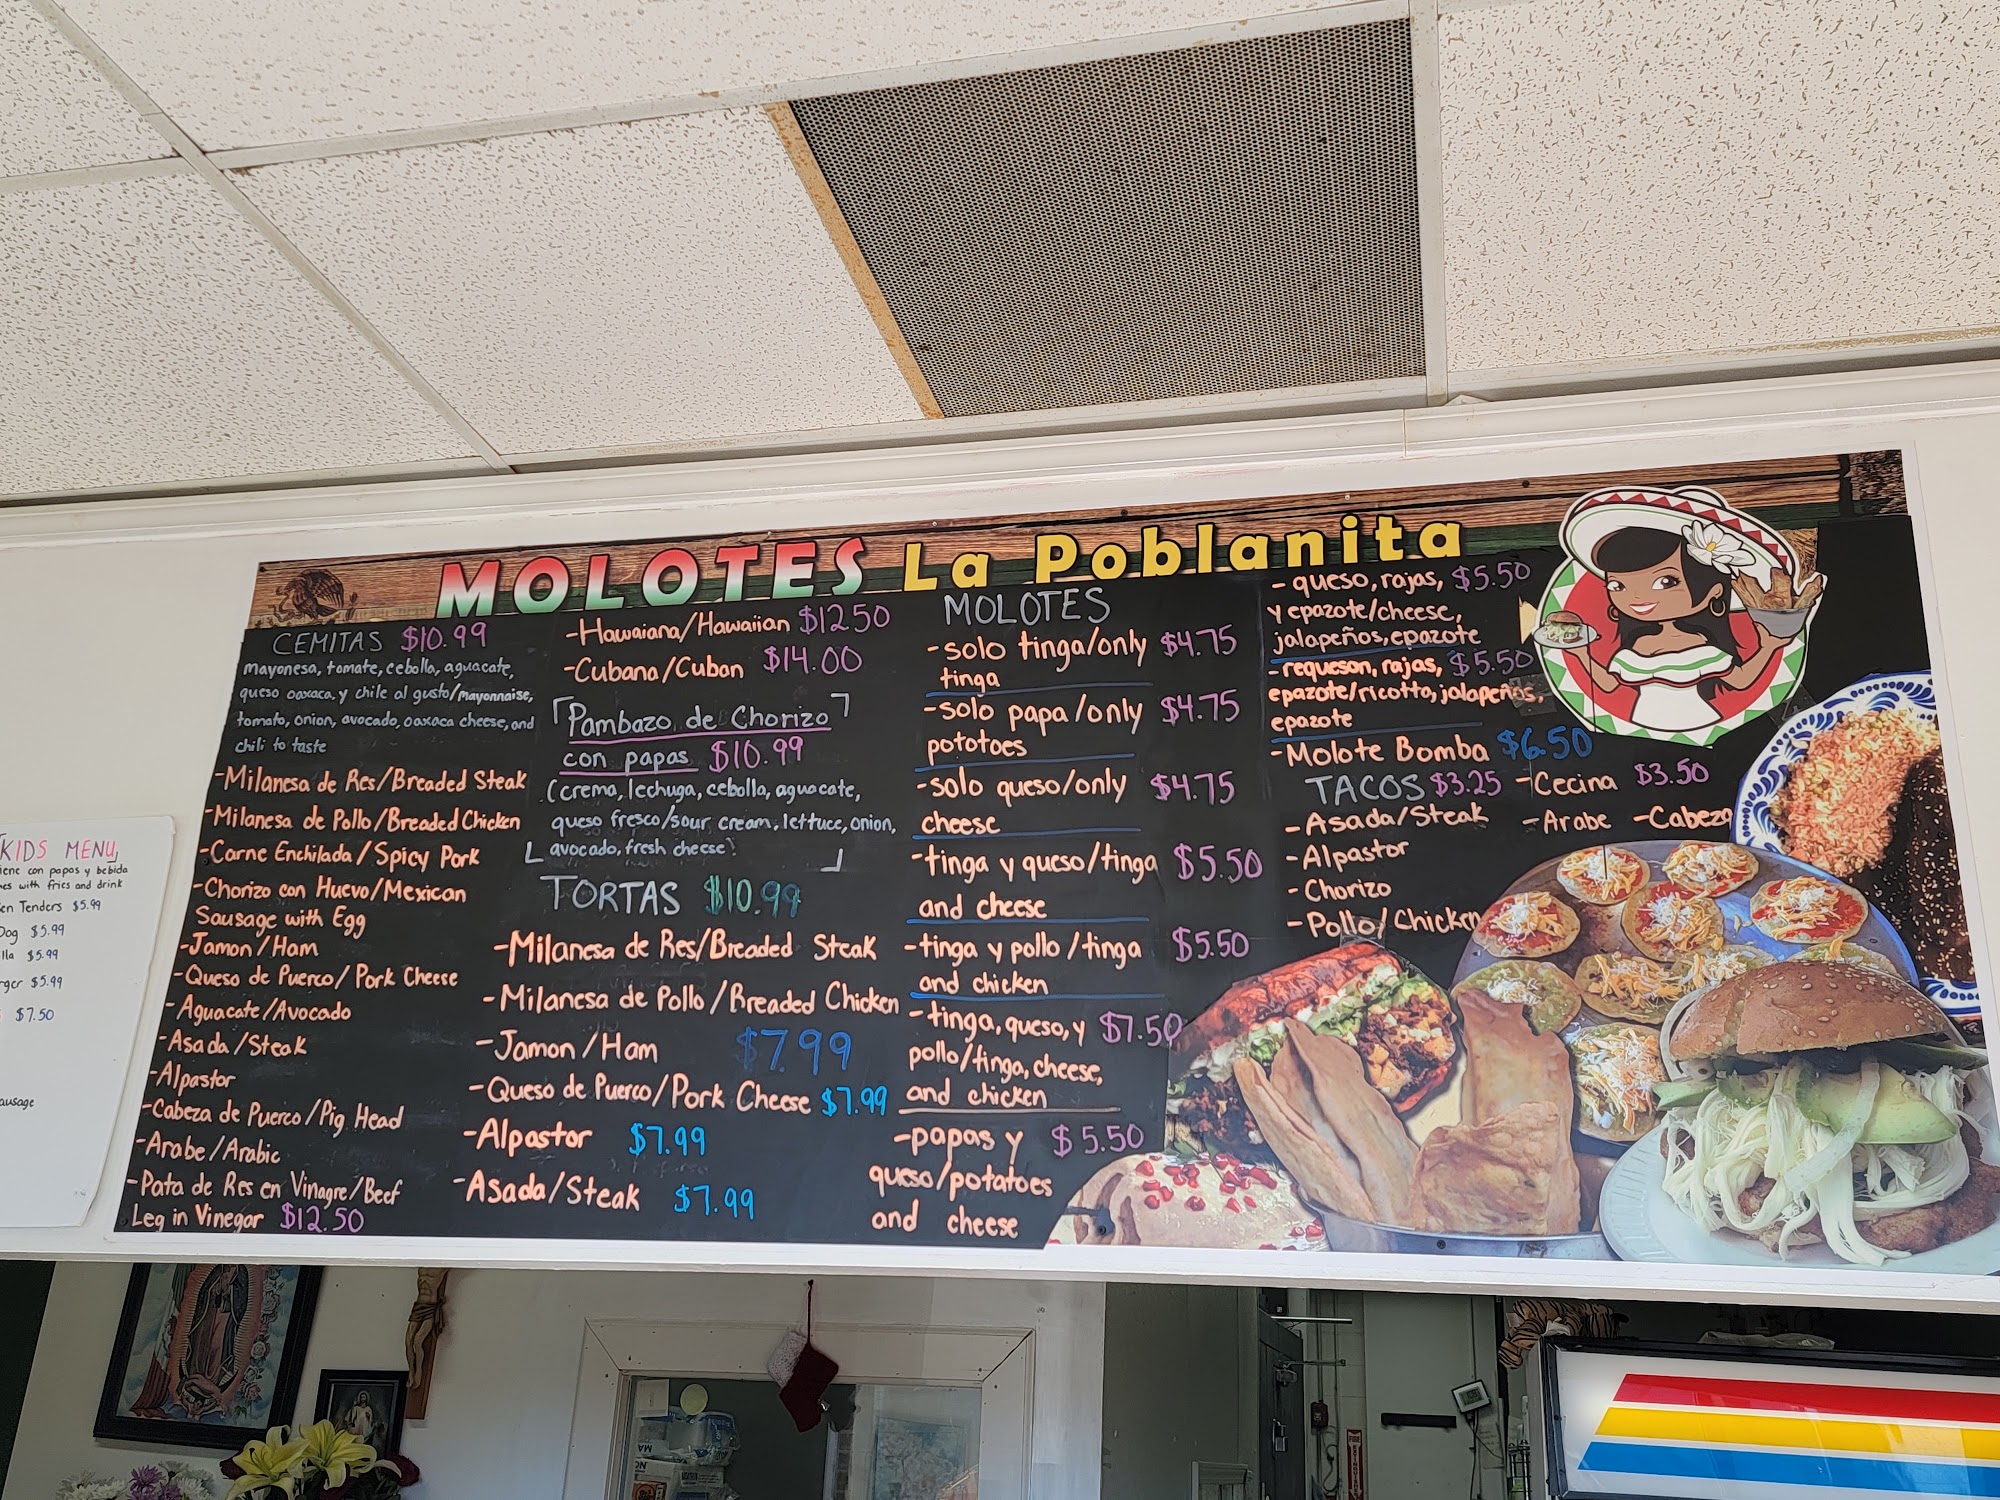 MOLOTES La Poblanita
CEMITAS $10.99
mayonesa, tomate, cebolla, aguacate,
queso oaxaca, y chile al gusto/mayonnaise,
tomato, onion, avocado, oaxaca cheese, and
chili to taste
-Milanesa de Res/Breaded Steak
-Milanesa de Pollo/Breaded Chicken
-Carne Enchilada/Spicy Pork
-Chorizo con Huevo/Mexican
Sausage with Egg
-Jamon/Ham
-Queso de Puerco/Pork Cheese
-Aguacate/Avocado
-Asada/Steak
-Alpastor
-Cabeza de Puerco/Pig Head
-Arabe/Arabic
-Pata de Res en Vinagre/Beef
Leg in Vinegar $12.50
-Hawaiana/Hawaiian $12.50
-Cubana/Cuban $14.00
Pambazo de Chorizo
con papas $10.99
(crema, lechuga, cebolla, aguacate,
queso fresco/sour cream, lettuce, onion,
avocado, fresh cheese)
TORTAS $10.99
-Milanesa de Res/Breaded Steak
-Milanesa de Pollo/Breaded Chicken
-Jamon/Ham $7.99
-Queso de Puerco/Pork Cheese $7.99
-Alpastor $7.99
-Asada/Steak $7.99
MOLOTES
-solo tinga/only $4.75
tinga
-solo papa/only $4.75
pototoes
-solo queso/only $4.75
cheese
-tinga y queso/tinga $5.50
and cheese
-tinga y pollo/tinga $5.50
and chicken
-tinga, queso, y $7.50
pollo/tinga, cheese,
and chicken
-papas y $5.50
queso/potatoes
and cheese
-queso, rajas, $5.50
y epazote/cheese,
jalapeños, epazote
-requeson, rajas, $5.50
epazote/ricotta, jalapeños,
epazote
-Molote Bomba $6.50
TACOS $3.25
-Asada/Steak
-Alpastor
-Chorizo
-Pollo/Chicken
-Cecina $3.50
-Arabe -Cabeza
KIDS MENU
iene con papas y bebida
es with fries and drink
en Tenders $5.99
Dog $5.99
lla $5.99
rger $5.99
$7.50
ausage
FIRE